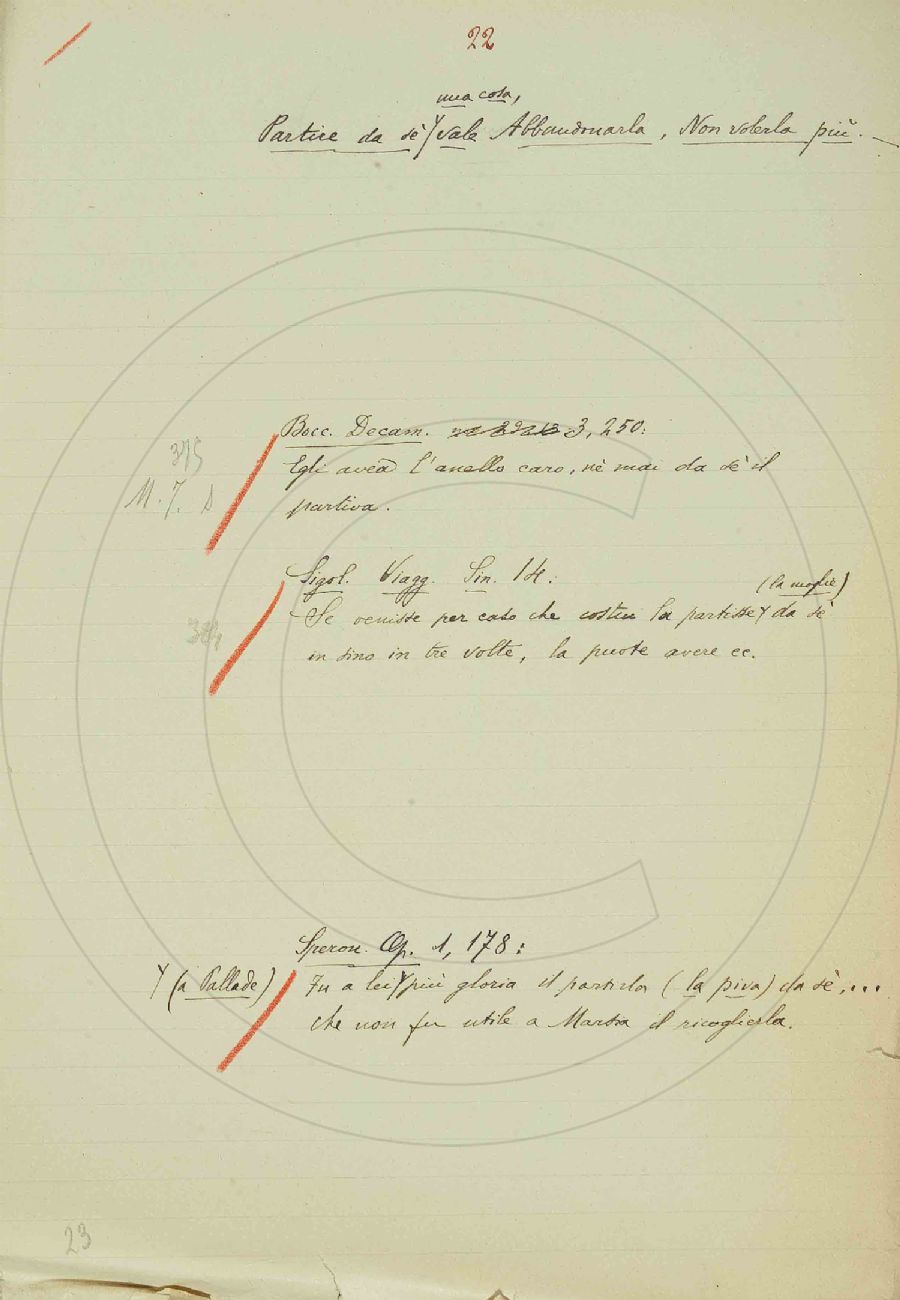 22
una cosa,
Partire da sè Y vale Abbandonarla, Non volerla più.
Bocc. Decam. 3, 250:
375
Egli avea l'anello caro, nè mai da sè il
M. F. D
partiva.
Sigol. Viagg. Sin. 14:
(la moglie)
Se venisse per caso che costui la partisse Y da sè
384
in sino in tre volte, la puote avere ec.
Speron. Op. 1, 178:
Y (a Pallade)
Fu a lei Y più gloria il partirla (la piva) da sè,...
che non fu utile a Marsia il ricoglierla.
23